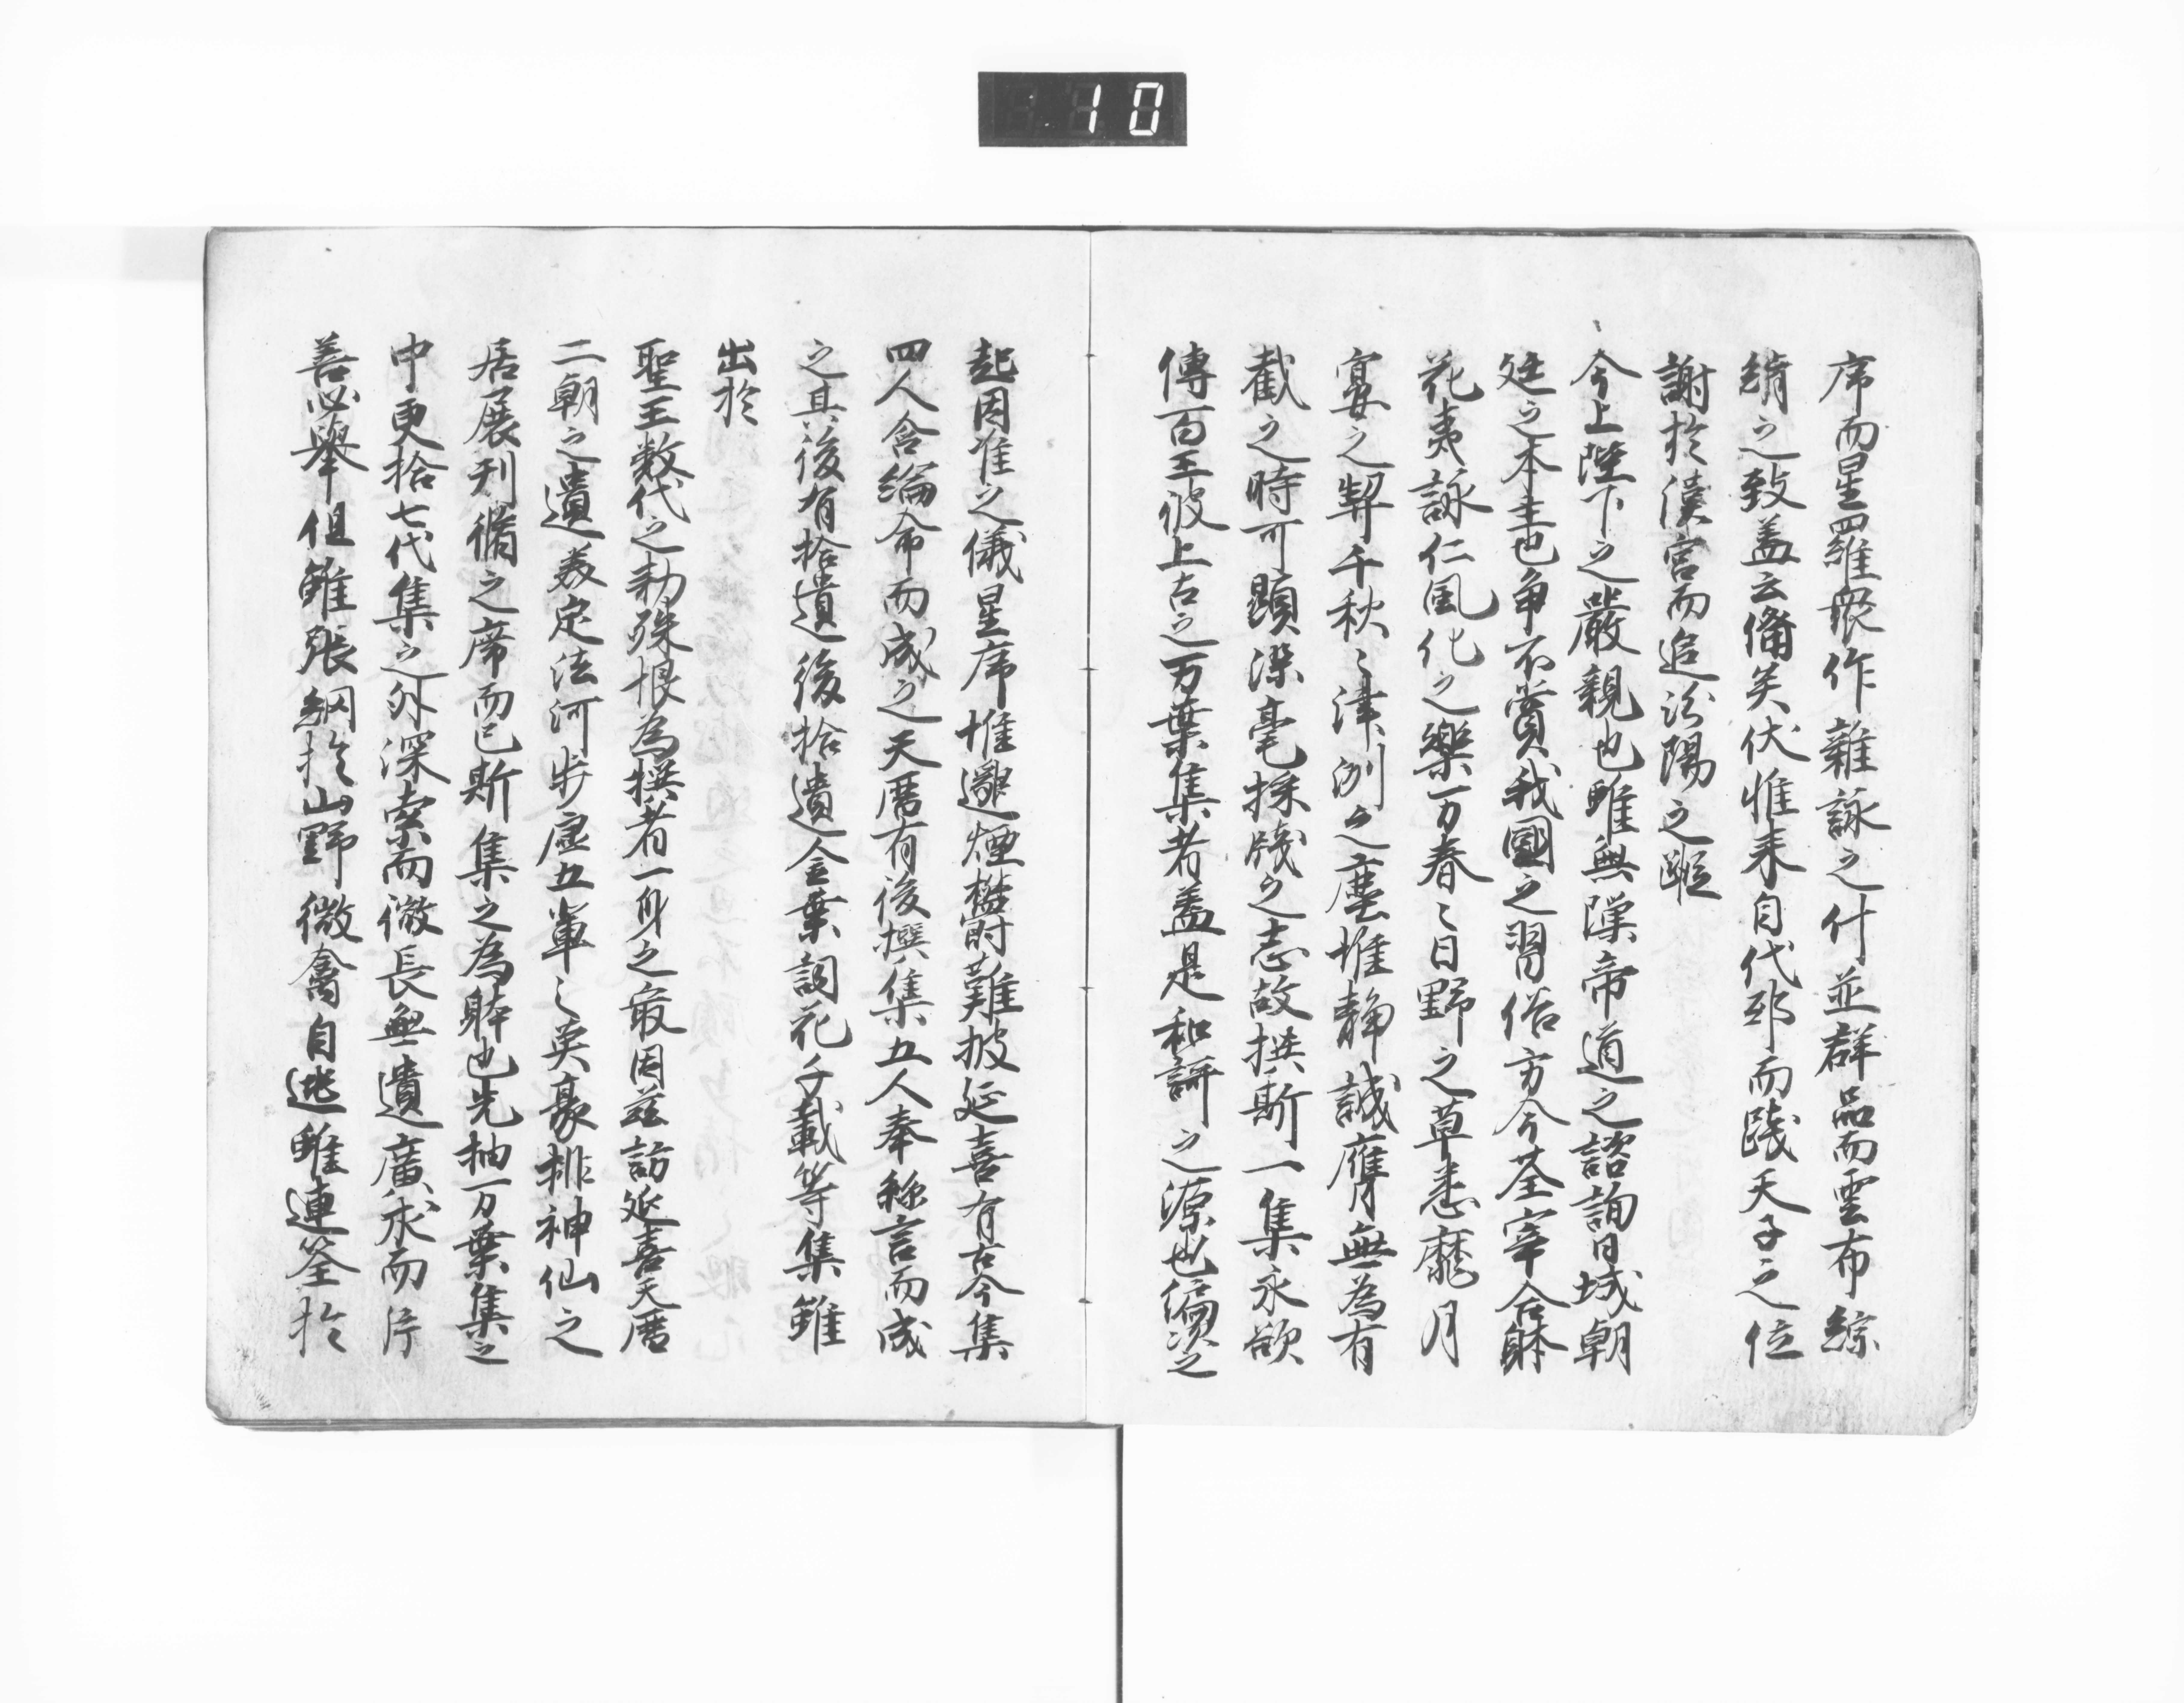 10
席而星羅衆作雜詠之什並群品而雲布綜
緝之致盖云備矣伏惟来自代邸而踐天子之位
謝於漢宮而追汾陽之蹤
今上陛下之嚴親也雖無隙帝道之諮詢日域朝
廷之本主也争不賞我國之習俗方今荃宰合躰
花夷詠仁風化之樂万春〻日野之草悉靡月
宴之契千秋〻津洲之塵惟静誠膺無為有
截之時可顕染毫採牋之志故撰斯一集永欲
傳百王彼上古之万葉集者盖是和謌之源也編次之
起因准之儀星序惟邈煙欝難披延喜有古今集
四人含綸命而成之天暦有後撰集五人奉絲言而成
之其後有拾遺後拾遺金葉詞花千載等集雖
出於
聖王數代之勅殊恨為撰者一身之最因茲訪延喜天暦
二朝之遺美定法河步虛五輩〻英豪排神仙之
居展刊脩之席而已斯集之為躰也先抽万葉集之
中更拾七代集之外深索而微長無遺廣求而片
善必舉但雖張網於山野微禽自逃雖連筌於